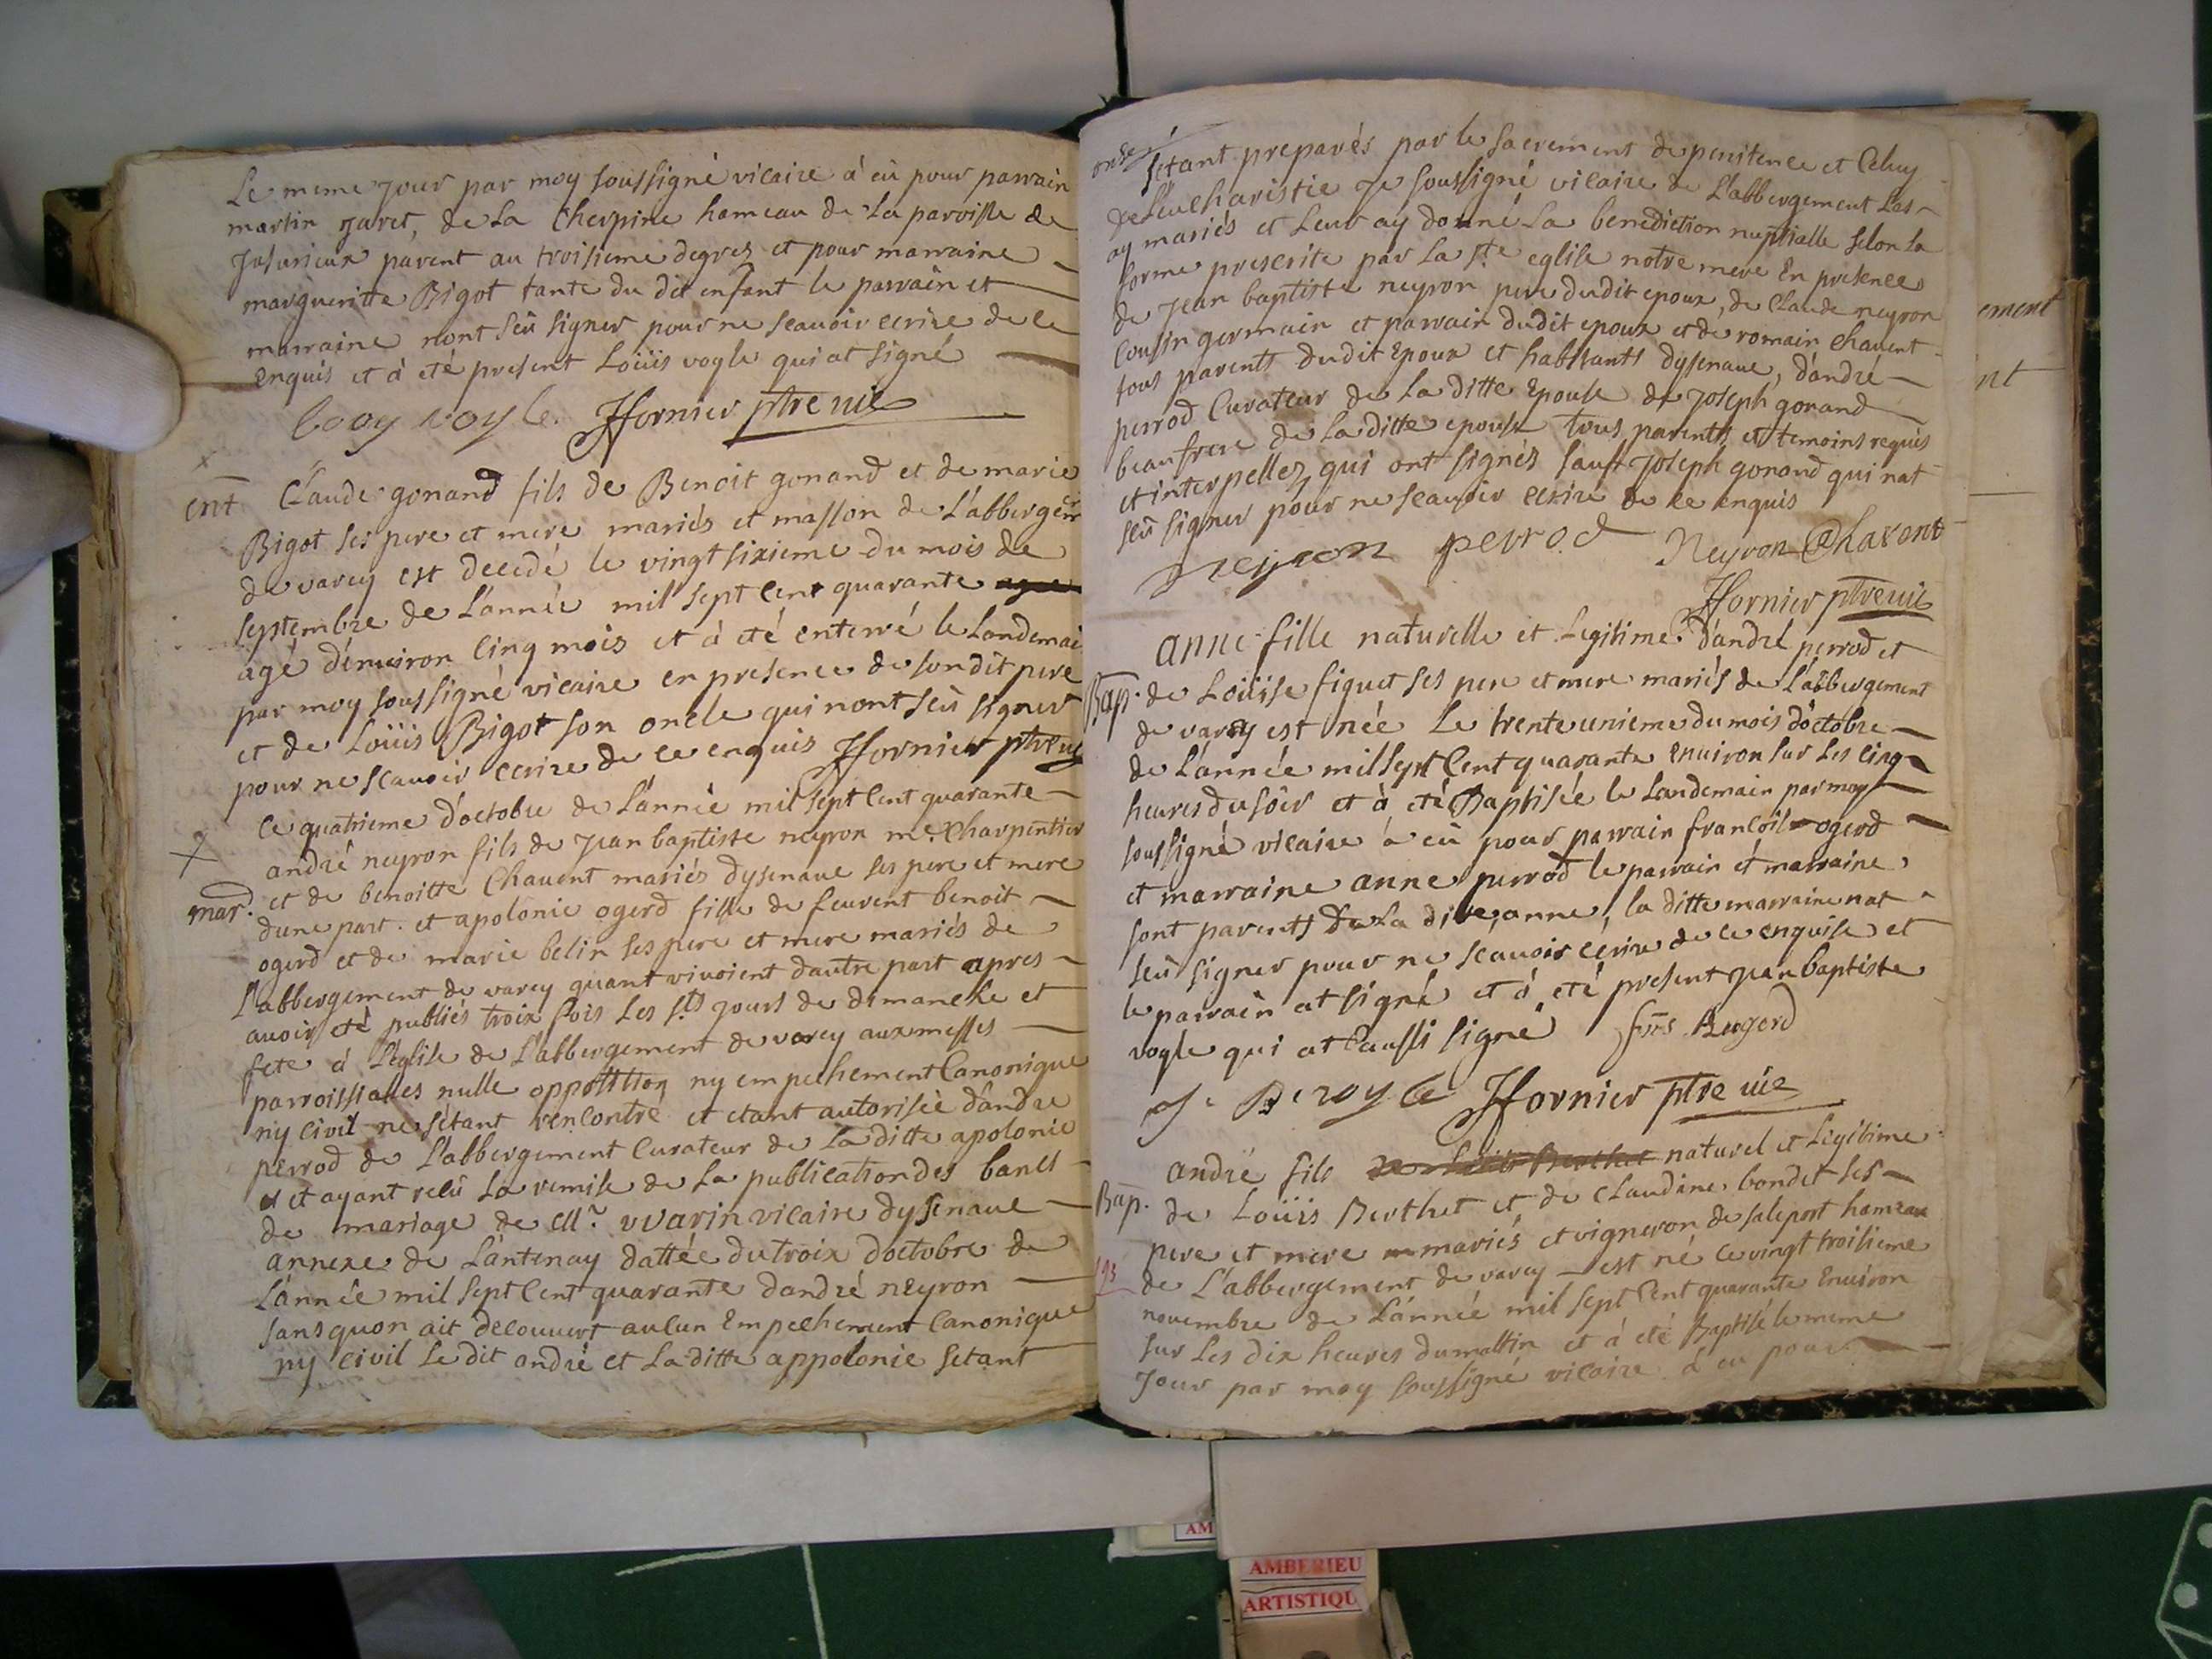 Le meme jour par moy soussigné vicaire à eü pour parrain
martin jaret, de la Cherpine hameau de la paroisse de
Jusurieux parent au troisieme degrez et pour marraine
margueritte Bigot tante du dit enfant le parrain et
marraine nont seü signer pour ne scauoir ecrire de ce
enquis et à eté present Loüis vogle qui at signé
looy voyle. Ffornier ptre vic
ent Claude gonand fils de Benoit gonand et de marie
Bigot ses pere et mere mariés et masson de L'abbergemt
de varey est decedé le vingt sixieme du mois de
septembre de L'année mil sept cent quarante
agé denuiron cinq mois et à eté enterré le Landemai
par moy soussigné vicaire en presence de son dit pere
et de Loüis Bigot son oncle qui nont seü signer
pour ne scauoir ecrire de ce enquis Ffornier ptre vic
Ce quatrieme doctobre de L'année mil sept cent quarante
andré neyron fils de Jean baptiste neyron me. Charpentier
mar. et de benoitte Chauent mariés dysenaue ses pere et mere
dune part. et apolonie ogerd fille de feurent benoit
ogerd et de marie belin ses pere et mere mariés de
L'abbergement de varey quant viuoient dautre part apres
auoir eté publiés troix fois Les sts jours de dimanche et
fete à L'eglise de L'abbergement de varey aux messes
parroissialles nulle opposition ny empechement Canonique
ny civil ne sétant rencontré et etant autorisée dandre
perrod de L'abbergement Curateur de La ditte apolonie
et ayant recü La remise de La publication des bancs
de mariage de Mr. vvarin vicaire dysenaue
annexe de Lantenay dattée du troix doctobre de
L'année mil sept cent quarante dandré neyron
sans quon ait decouuert aucun Empechement Canonique
ny civil Le dit andré et La ditte appolonie setant
setant preparés par le sacrement de penitence et Celuy
de Leucharistie Je soussigné vicaire de L'abbergement Las
ay mariés et Leur ay donné La benediction nuptialle selon la
forme prescrite par La ste eglise notre mere En presence
de Jean baptiste neyron pere dudit epoux, de Claude neyron
Cousin germain et parrain dudit epoux et de romain Chauent
tous parents dudit Epoux et habitants dysenaue, dandré
perrod Curateur de La ditte Epouse de Joseph gonand
beaufrere de La ditte epouse tous parents et temoins requis
et interpellez qui ont signés sauf Joseph gonand qui nat
seü signer pour ne scauoir ecrire de ce enquis
neyron perrod Neyron Chavent
Ffornier ptre vic
anne fille naturelle et Legitime dandré perrod et
Bap. de Loüise figuet ses pere et mere mariés de L'abbergement
de varey est née Le trente unieme du mois doctobre
de L'année mil sept Cent quarante enuiron sur Les cinq
heures du soir et à eté Baptisée le Landemain par moy
soussigné vicaire à eü pour parrain francois ogerd
et marraine anne perrod le parrain et marraine
sont parents de La dite anne, la ditte marraine nat
seü signer pour ne scauoir ecrire de ce enquise et
le parrain at signé et à eté present Jean baptiste
vogle qui at aussi signé frs Augerd
J. B. voyle Ffornier ptre vic
andré fils naturel et Legitime
Bap. de Loüis Berthet et de Claudine bondet ses
pere et mere mariés et vigneron de saleport hameau
de L'abbergement de varey est né ce vingt troisieme
nouembre de L'année mil sept Cent quarante Enuiron
sur Les dix heures du mattin et à eté Baptisé le meme
Jour par moy soussigné vicaire à eu pour
ement
nt
AM
AMBERIEU
ARTISTIQU